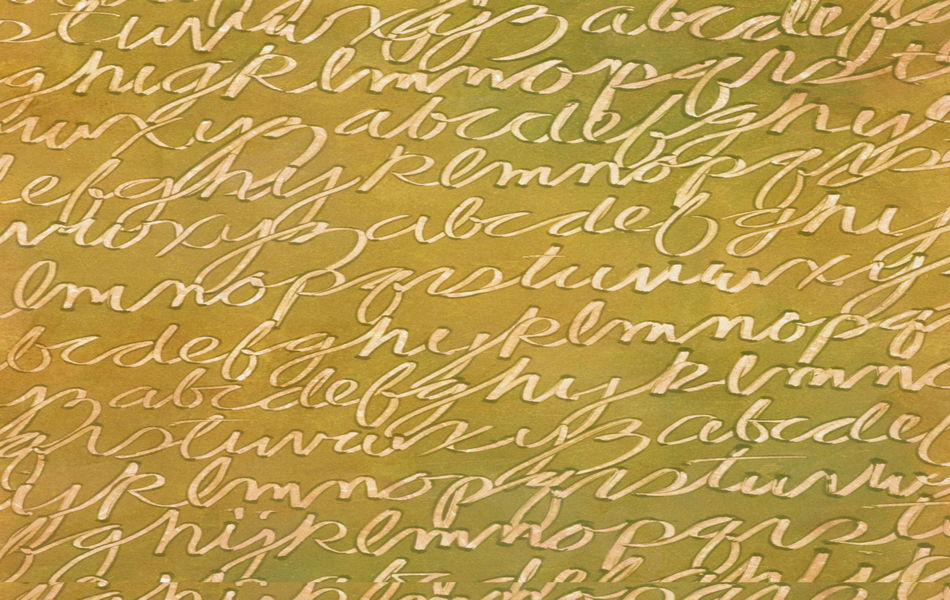 stuvwxyz abcdef
ghijk lmnopqrst
uvwxyz abcdefghij
defghij klmnopqrs
uvwxyz abcdef ghij
lmnopqrstuvwxy
bcdefghijklmnopq
yz abcdefghijklmn
qrstuvwxyz abcde
ijk lmnopqrstuvw
fghijklmnopqrst